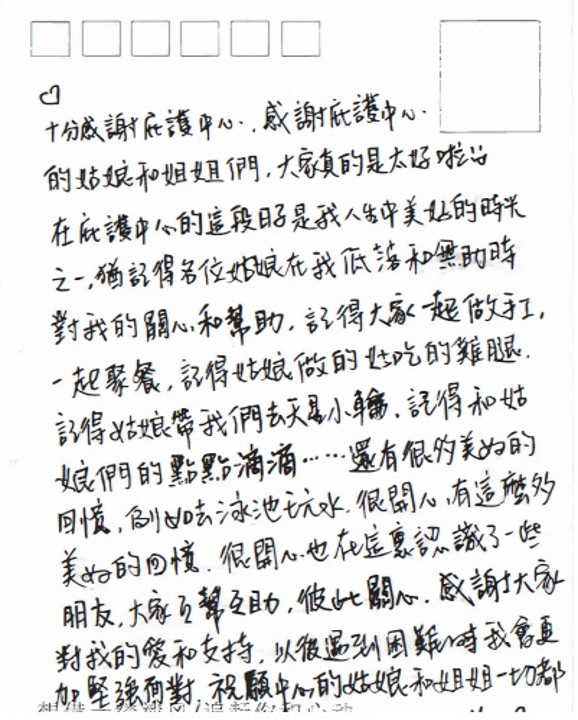 十分感謝庇護中心，感謝庇護中心
的姑娘和姐姐們，大家真的是太好啦
在庇護中心的這段日子是我人生中美好的時光
之一，猶記得各位姑娘在我低落和無助時
對我的關心和幫助，記得大家一起做手工，
一起聚餐，記得姑娘做的好吃的雞腿，
記得姑娘帶我們去天星小輪，記得和姑
娘們的點點滴滴……還有很多美好的
回憶，例如去泳池玩水，很開心有這麼多
美好的回憶，很開心也在這裏認識了一些
朋友，大家互幫互助，彼此關心，感謝大家
對我的愛和支持，以後遇到困難時我會更
加堅強面對，祝願中心的姑娘和姐姐一切都